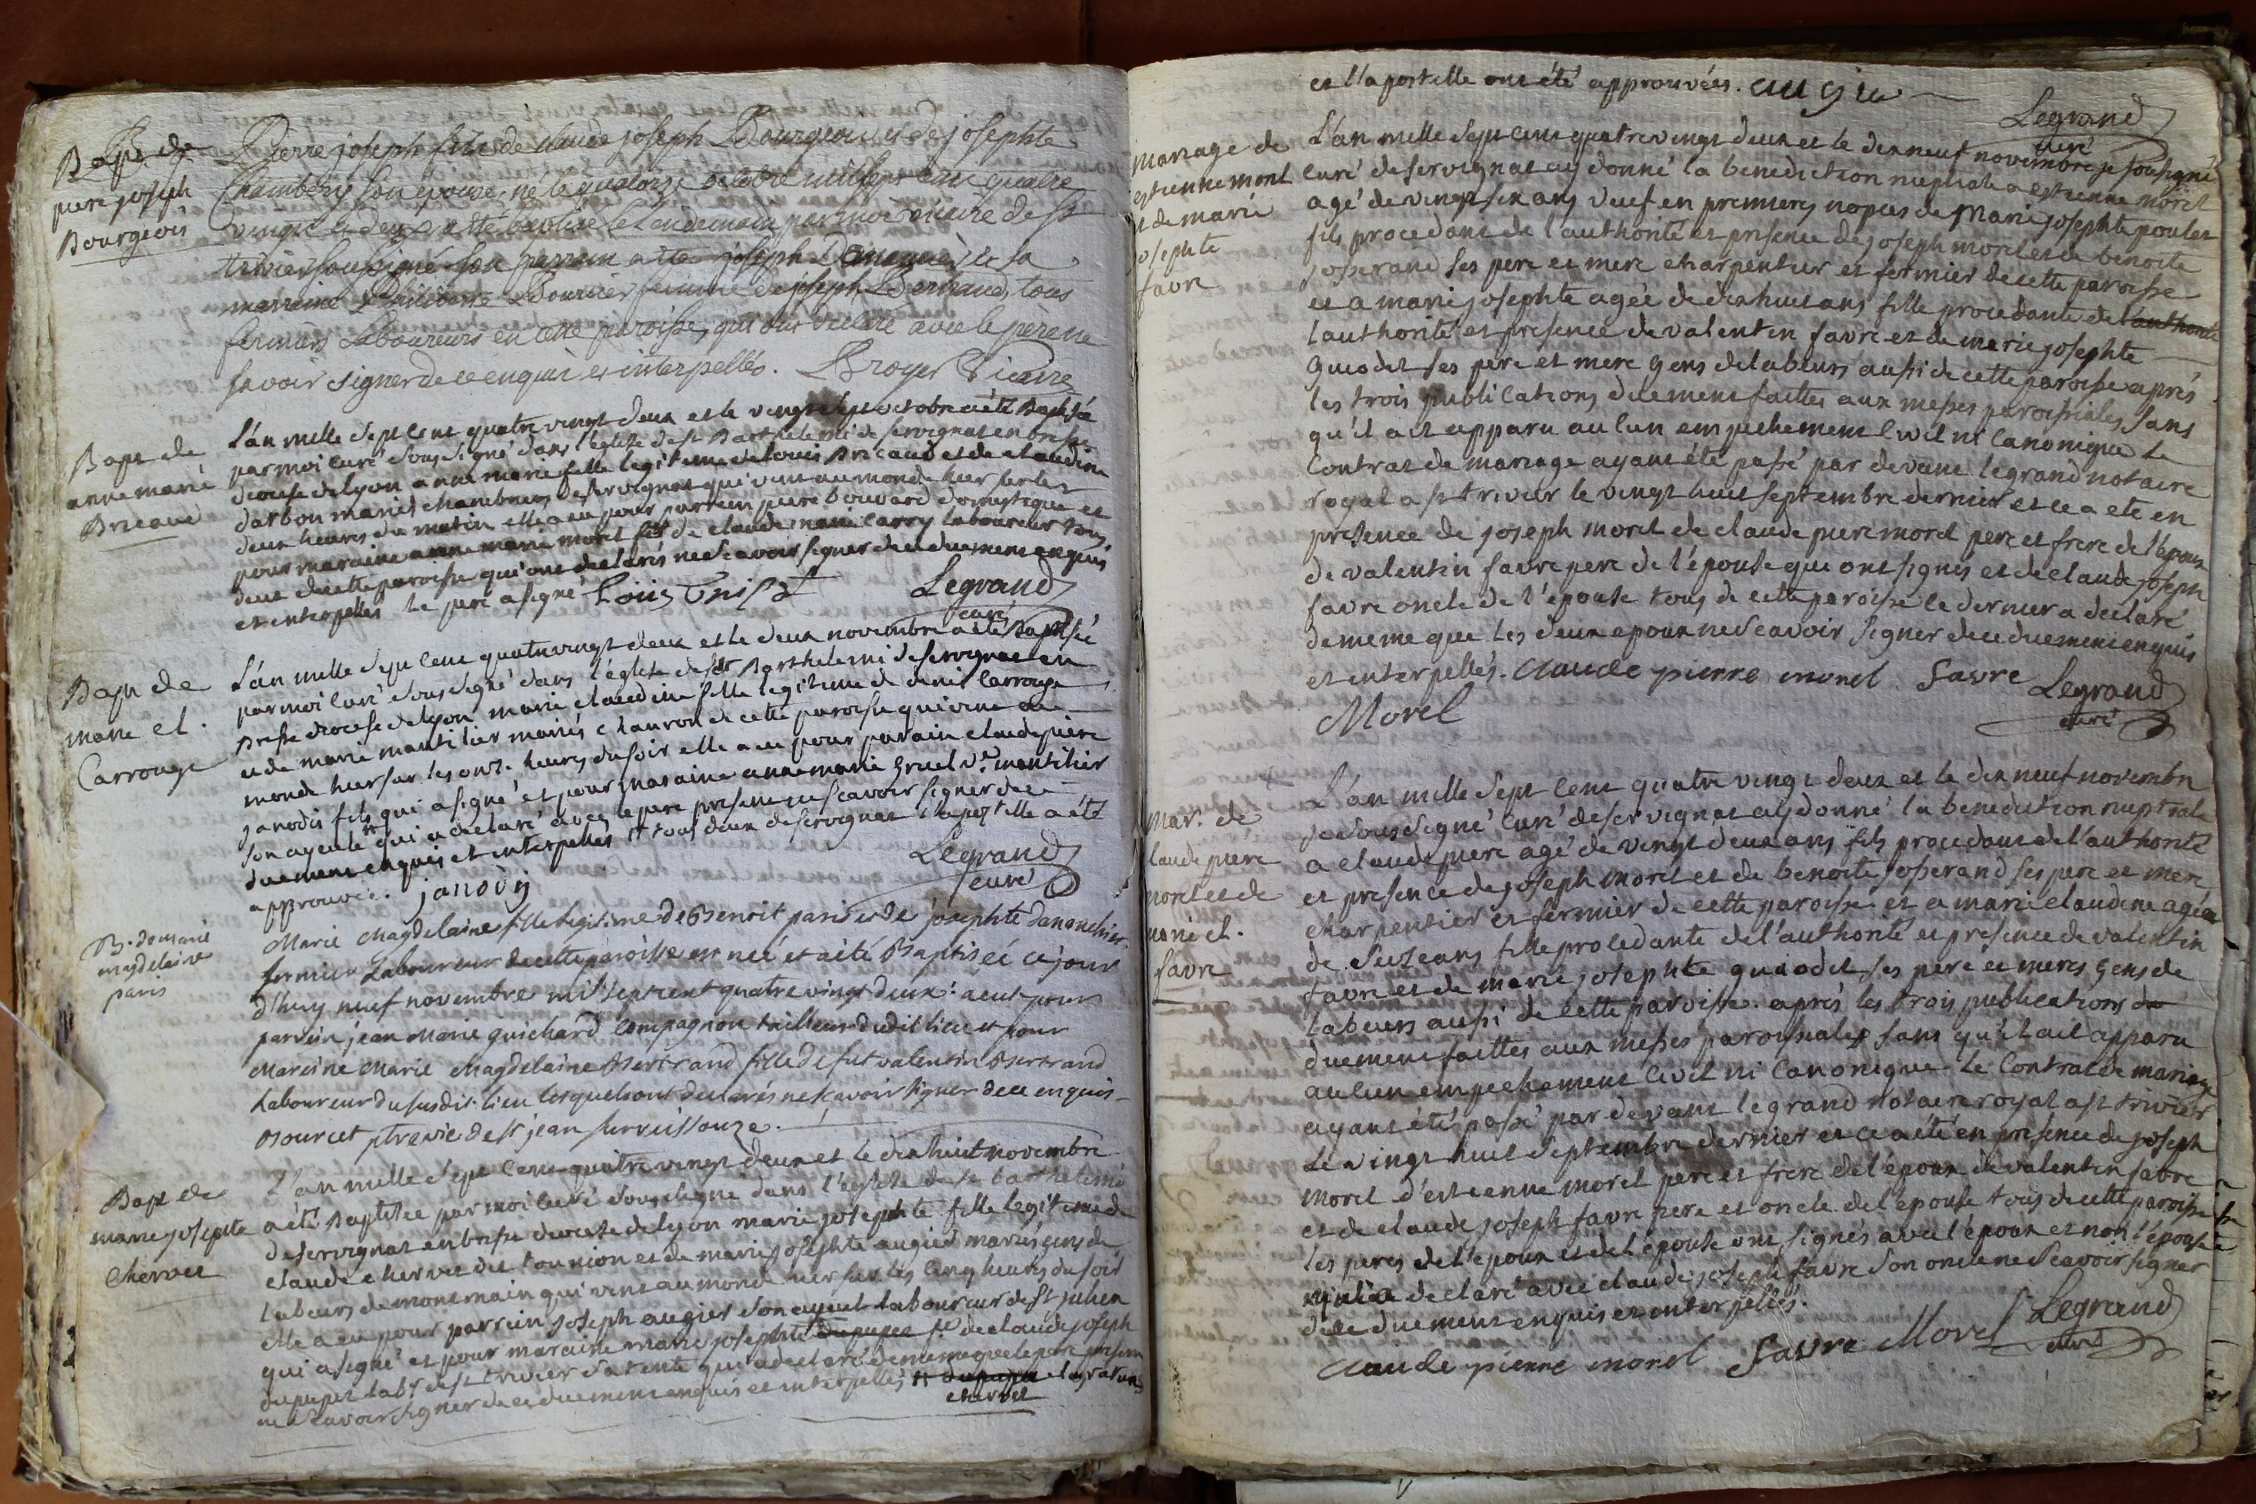 Bapt de
pierre joseph
Bourgeois
Pierre joseph fils de claude joseph Bourgeois et de josephte
Chambery son epouse né le quatorze octobre mil sept cent quatre
vingt et deux a été baptisé le lendemain par moi vicaire de st
trivier soussigné son parrain a été joseph et sa
marraine femme de joseph Bertrand, tous
fermiers Laboureurs en cette paroisse, qui ont declaré avec le père ne
savoir signer de ce enquis et interpellés. Broyer Vicaire
Bapt de
anne marie
Bricaud
L'an mille sept cent quatre vingt deux et le vingt sept octobre a été Baptisée
par moi curé sous signé dans l'eglise de st Barthelemi de servignat en bresse
diocese de lyon anne marie fille legitime de louis Bricaud et de claudine
darbon mariés chambriers de servignat qui vint au monde hier sur les
deux heures du matin elle a eu pour parrein pierre Bouvard domestique et
pour maraine anne marie morel fe de claude marie carry laboureur tous
deux de cette paroisse qui ont declarés ne scavoir signer de ce duement enquis
et interpellés le pere a signé Louis
Legrand
curé
Bapt de
marie cl.
Carrouge
L'an mille sept cent quatre vingt deux et le deux novembre a été Baptisée
par moi curé sous signé dans l'église de st Barthelemi de servignat en
Bresse diocese de lyon marie claudine fille legitime de denis Carrouge
et de marie mantilier mariés de cette paroisse qui vint au
monde hier sur les onze heures du soir elle a eu pour parain claude pierre
janodis fils qui a signé et pour maraine anne marie gruel ve. mantilier
son ayeule qui a declaré avec le pere present ne scavoir signer de ce
duement enquis et interpellés tous deux de servignat l'apostelle a été
approuvée. janody
Legrand
curé
B. de marie
magdelaine
paris
Marie Magdelaine fille legitime de Benoit paris et de josephte danancher
fermier Laboureur de cette paroisse est née et a été Baptisée ce jour
d'huy neuf novembre mil sept cent quatre vingt deux: a eut pour
parrein jean Marie guichard compagnon tailleur dudit lieu et pour
Mareine Marie Magdelaine Bertrand fille de fut valentin Bertrand
Laboureur du susdit lieu lesquels ont declarés ne scavoir signer de ce enquis
Bourcet ptre vic de st jean sur reissouze.
Bapt de
marie josephte
Chervet
L'an mille sept cent quatre vingt deux et le dix huit novembre
a été Baptisée par moi curé sous signé dans l'eglise de st barthelemi
de servignat en bresse diocese de lyon marie josephte fille legitime de
claude chervet dit tounion et de marie josephte augier mariés gens de
labeurs de montmain qui vint au monde hier sur les cinq heures du soir
elle a eu pour parrein joseph augier son ayeul laboureur de st julien
qui a signé et pour maraine marie josephte dupuget fe de claude joseph
dupuget labr de st trivier sa tente qui a declaré de meme que le pere present
ne scavoir signer de ce duement enquis et interpellés la rature
chervet
et l'apostelle ont été approuvées. augie
Legrand
curé
mariage de
estienne morel
et de marie
josephte
favre
L'an mille sept cent quatre vingt deux et le dix neuf novembre je soussigné
curé de servignat ay donné la benediction nuptiale a estienne morel
agé de vingt six ans veuf en premiers nopces de Marie josephte poulet
fils procedant de l'authorité et presence de joseph morel et de benoite
josserand ses pere et mere charpentier et fermier de cette paroisse
et a marie josephte agée de dix huit ans fille procedante de l'authorité
l'authorité et presence de valentin favre et de marie josephte
guiodet ses pere et mere gens de labeurs aussi de cette paroisse aprés
les trois publications duement faittes aux messes paroissiales sans
qu'il ait apparu aucun empechement civil ni canonique Le
Contrat de mariage ayant été passé par devant legrand notaire
royal a st trivier le vingt huit septembre dernier et ce a ete en
presence de joseph morel de claude pierre morel pere et frere de l'epoux
de valentin favre pere de l'épouse qui ont signés et de claude joseph
favre oncle de l'épouse tous de cette paroisse le dernier a declaré
de meme que les deux epoux ne scavoir signer de ce duement enquis
et interpellés. claude pierre morel favre
Legrand
curé
Morel
Mar. de
claude pierre
morel et de
marie cl.
favre
L'an mille sept cent quatre vingt deux et le dix neuf novembre
je sous signé curé de servignat ay donné la benediction nuptiale
a claude pierre agé de vingt deux ans fils procedant de l'authorité
et presence de joseph morel et de benoite josserand ses pere et mere
charpentier et fermier de cette paroisse et a marie claudine agée
de seize ans fille procedante de l'authorité et presence de valentin
favre et de marie josephte guiodet ses pere et meres gens de
labeurs aussi de cette paroisse. aprés les trois publications
duement faittes aux messes paroissiales sans qu'il ait apparu
aucun empechement civil ni canonique Le Contrat de mariage
ayant été passé par devant legrand notaire royal a st trivier
Le vingt huit septembre dernier et ce a été en presence de joseph
morel d'estienne morel pere et frere de l'époux de valentin favre
et de claude joseph favre pere et oncle de l'épouse tous de cette paroisse
les peres de l'époux et de l'épouse ont signés avec l'époux et non l'épouse
qui a declaré avec claude joseph favre son oncle ne scavoir signer
de ce duement enquis et interpellés.
Legrand
curé
claude pierre morel favre Morel